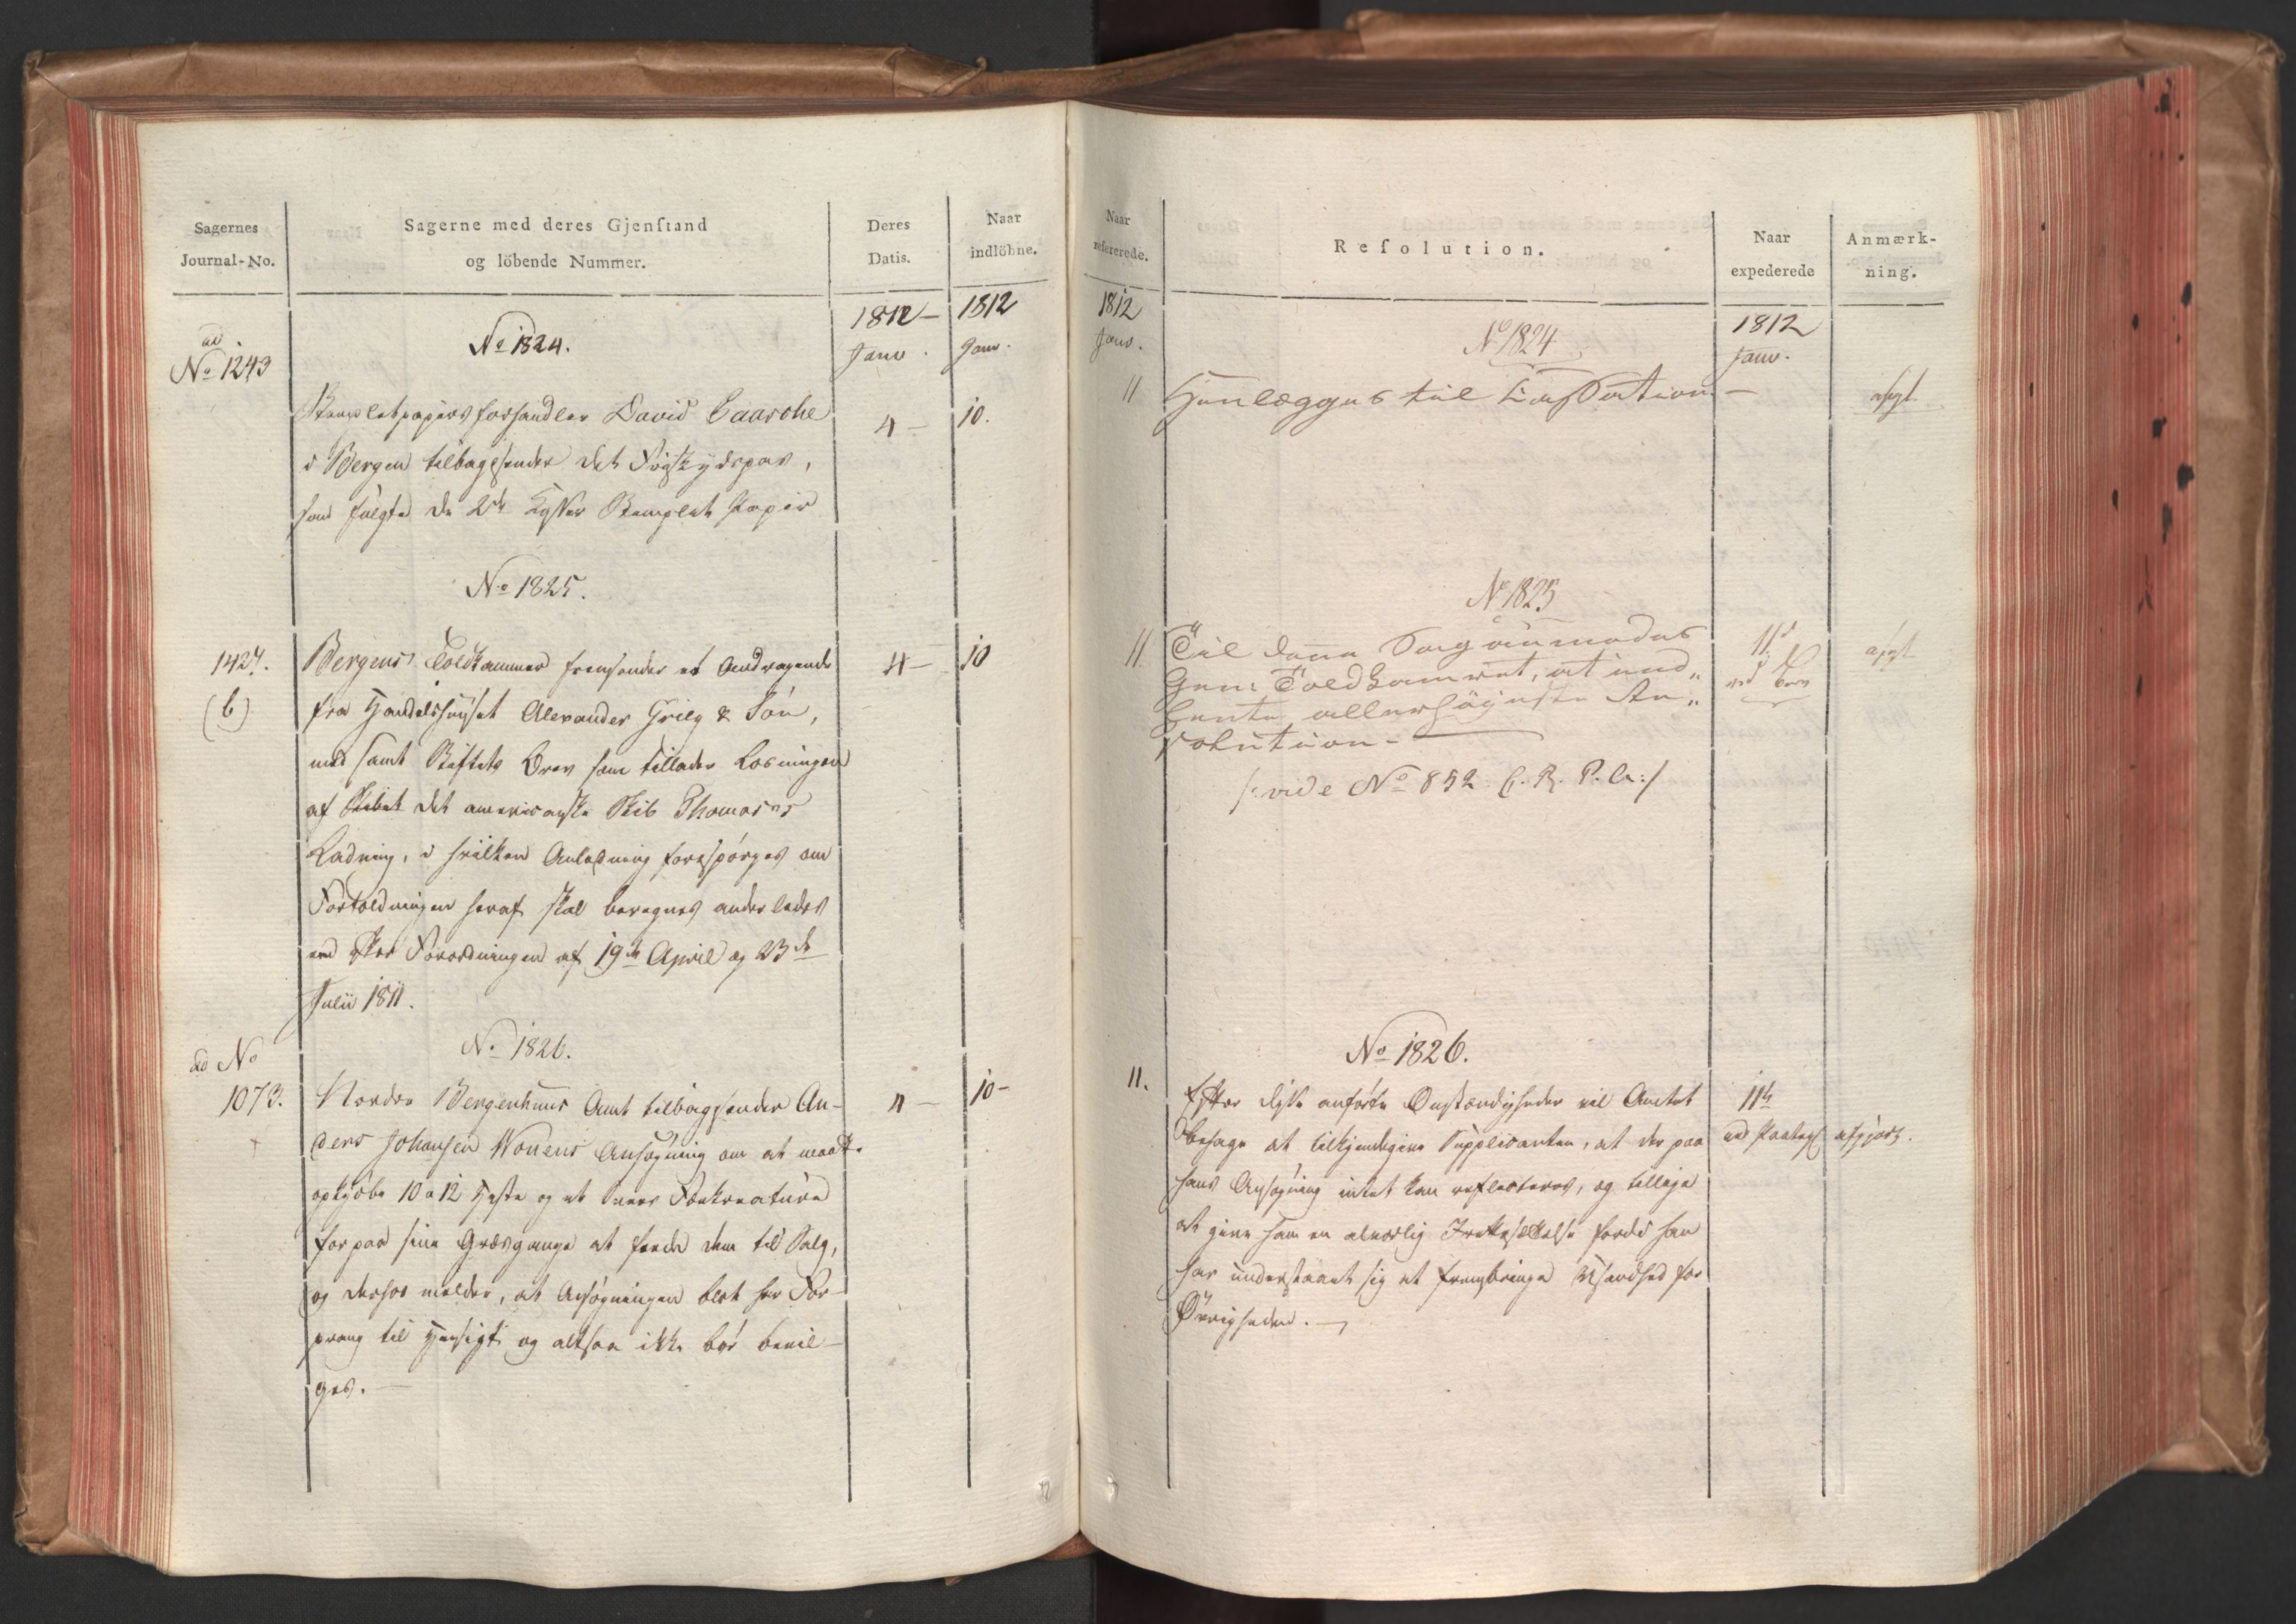 Sagernes
Journal-No.
Sagerne med deres Gjenstand
og löbende Nummer.
Deres
Datis.
Naar
indlöbne.
1812 —
Janv.
1812
Janv.
ad
No 1243
No 1824.
Stemplet papiirs forhandler David Caarshe
i Bergen tilbagesender det
som fulgte de 2de Kister Stemplet Papir
4 —
10.
No 1825.
1427.
(b)
Bergens Toldkammer fremsender et Andragende
fra Handelshuuset Alexander Grieg & Sön,
med samt Stiftets Brev som tillader Losningen
af Skibet det americanske Skib Thomas's
Ladning, i hvilken Anledning forespörges om
Fortoldningen heraf skal beregnes anderledes
end efter Forordningen af 19de April og 23de
Julii 1811.
4 —
10
No 1826.
ad No
1073.
Nordre Bergenhuus Amt tilbagesender An-
ders Johansen Wonens Ansøgning om at maatte
opkjöbe 10 a 12 Heste og at Fækreature
for paa sine Græsgange at feede dem til Salg,
og derhos melder, at Ansøgningen blot har For-
prang til Hensigt og altsaa ikke bör bevil-
ges. —
4 —
10 —
Naar
refererede.
Resolution.
Naar
expederede
Anmærk-
ning.
1812
Janv.
1812
Janv.
No 1824
11
Henlægges til Cassation —
afgt
No 1825
11
Til denne Sag anmodes
Gen: Toldkamret, at ind-
hente allerhöjeste Re-
solution —
/: vide No 852 C. R. P. Cr :/
11t
ved Brev
afgt
No 1826.
11.
Efter disse anförte Omstændigheder vil Amtet
behage at tilkjendegive Supplicanten, at der paa
hans Ansøgning intet kan reflecteres, og tillige
at give ham en alvorlig Irettesættelse fordi han
har understaaet sig at frembringe Usandhed for
Övrigheden. —
11te
ved Paategn.
afgjort.